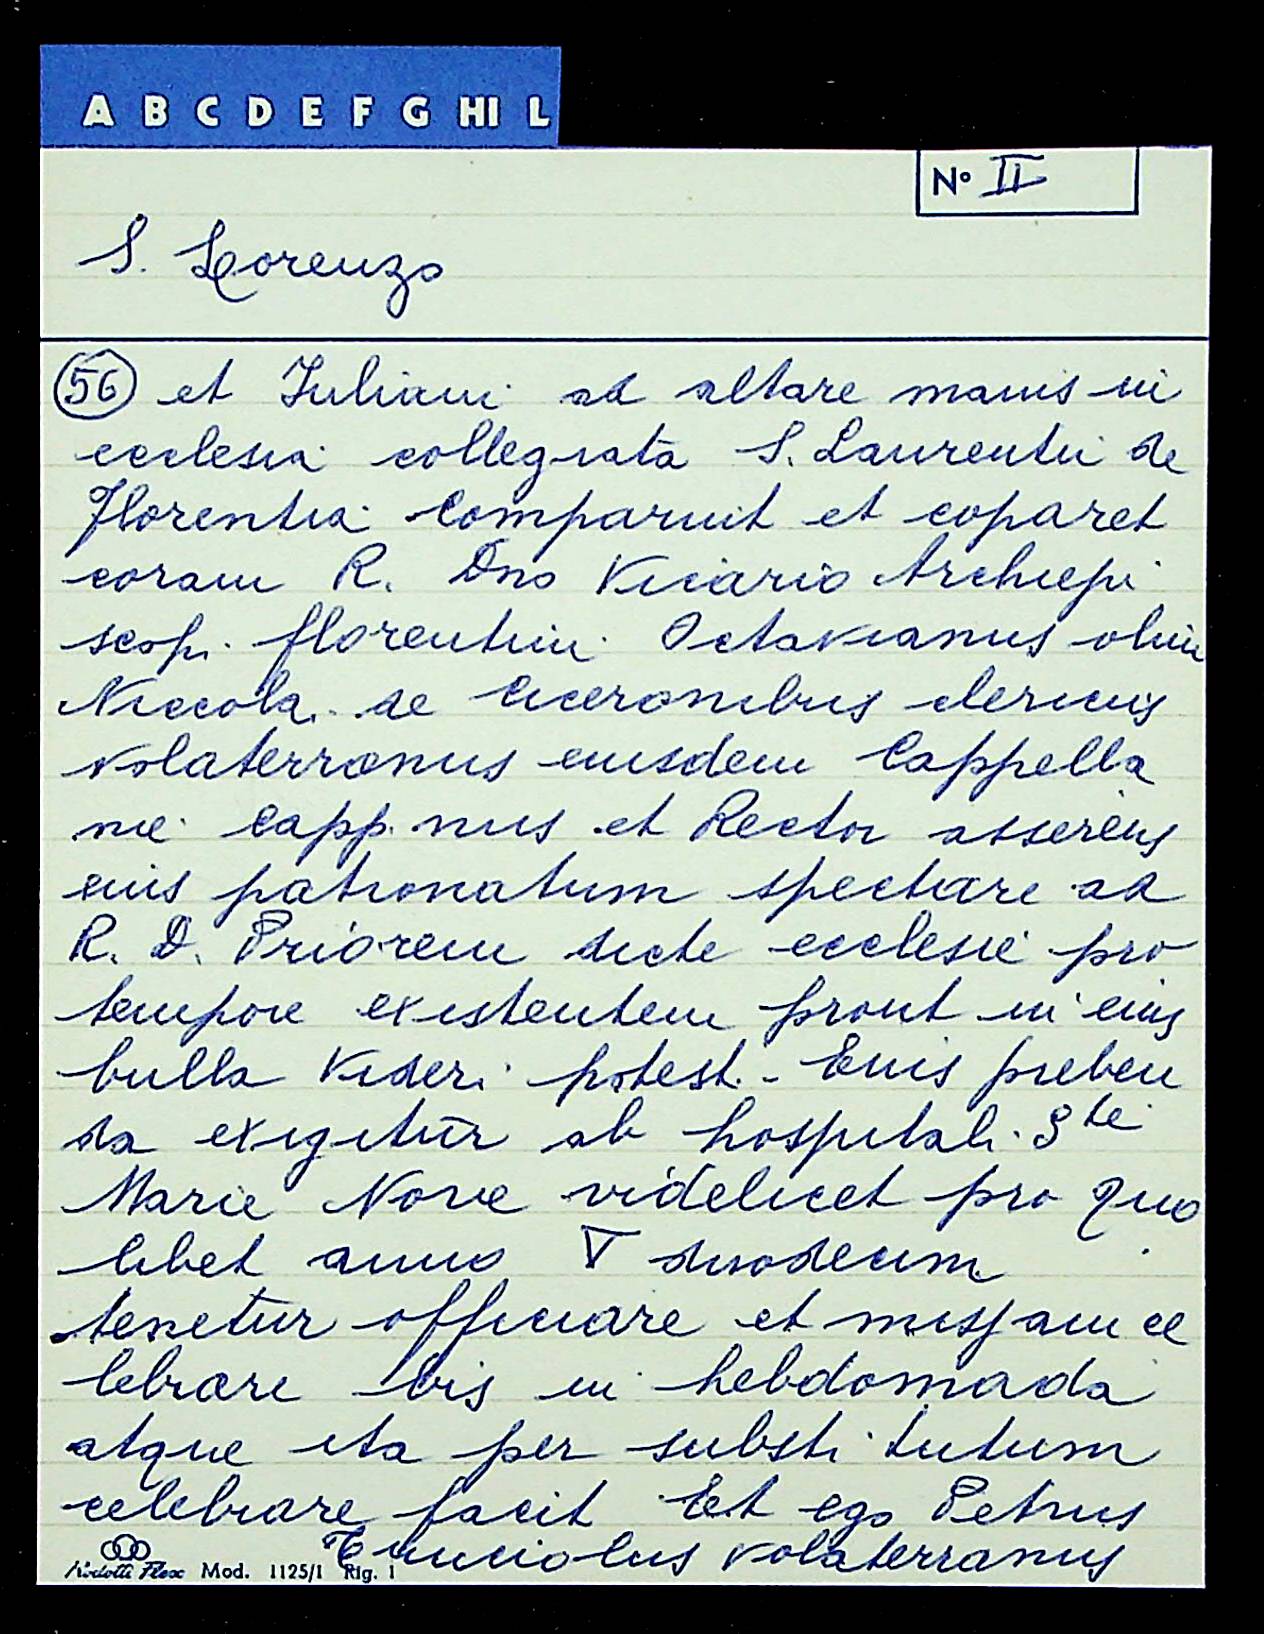 A B C D E F G HI L
N° II
S. Lorenzo
56 et Iuliani ad altare manis in
ecclesia collegiata S. Laurentii de
Florentia Comparuit et coparet
coram R. Dno Vicario Archiepi
scopi florentini Octavianus olim
Niccola de Ciceronibus clericus
volaterranus eiusdem Cappella
nie capp. nus et Rector asserens
eius patronatum spectare ad
R. D. Priorem dicte ecclesie pro
tempore existentem prout in eius
bulla videri potest. - Euis preben
da exigitur ab hospitali Ste
Marie Nove videlicet pro quo
libet anno ∇ duodecim
tenetur officiare et missam ce
lebrare bis in hebdomada
atque ita per substitutum
celebrare facit Et ego Petrus
volaterranus
Mod. 1125/1 Rig. 1